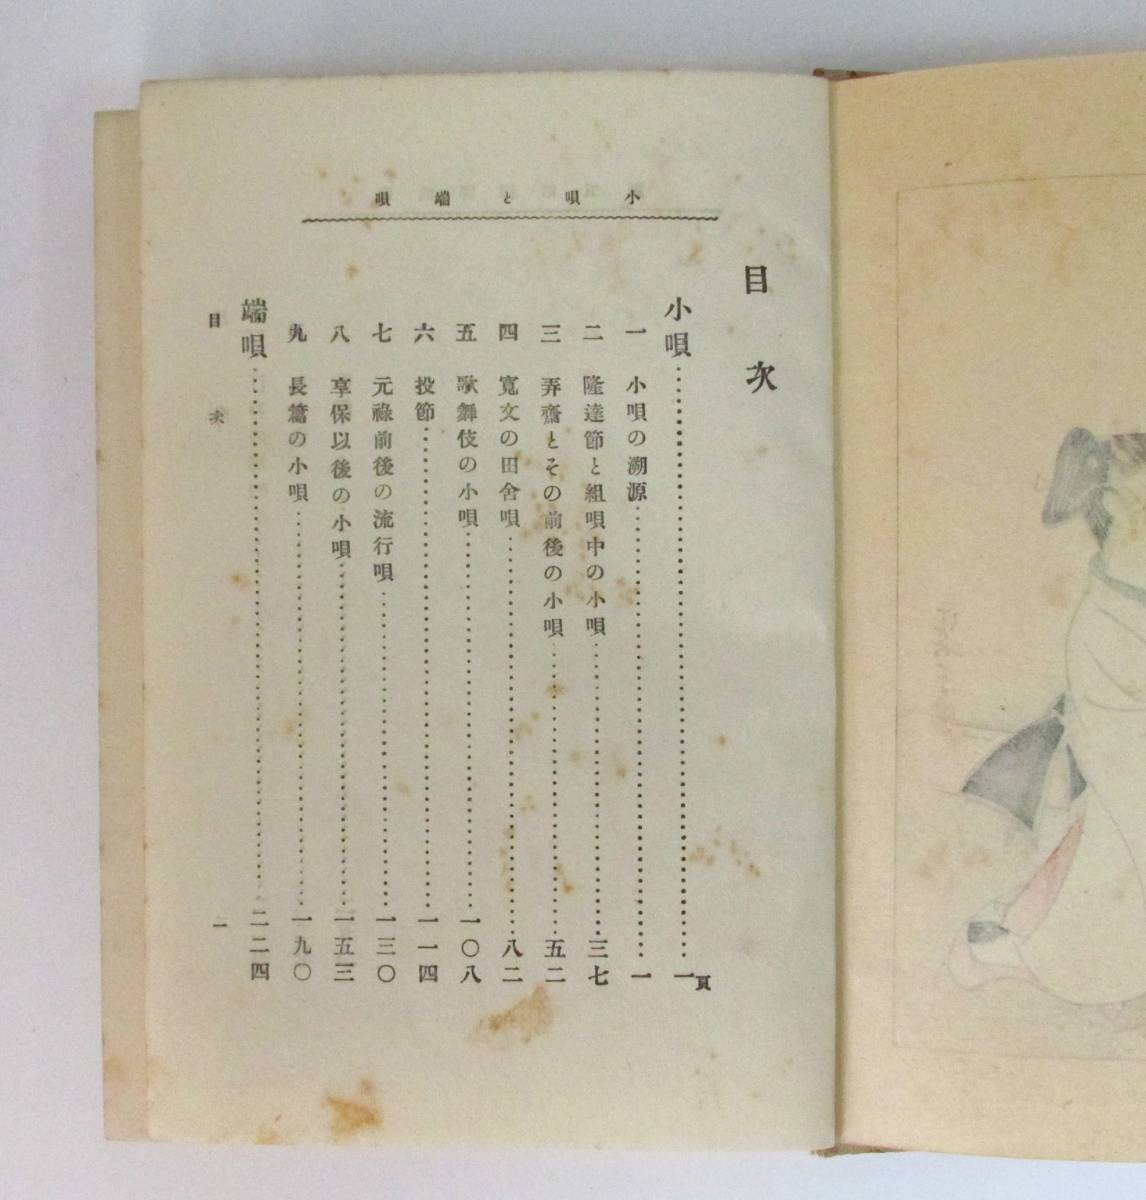 小唄と端唄
目次
小唄……一頁
一 小唄の溯源……一
二 隆達節と組唄中の小唄……三七
三 弄齋とその前後の小唄……五二
四 寛文の田舍唄……八二
五 歌舞伎の小唄……一〇八
六 投節……一一四
七 元祿前後の流行唄……一三〇
八 享保以後の小唄……一五三
九 長篇の小唄……一九〇
端唄……二二四
目次
一